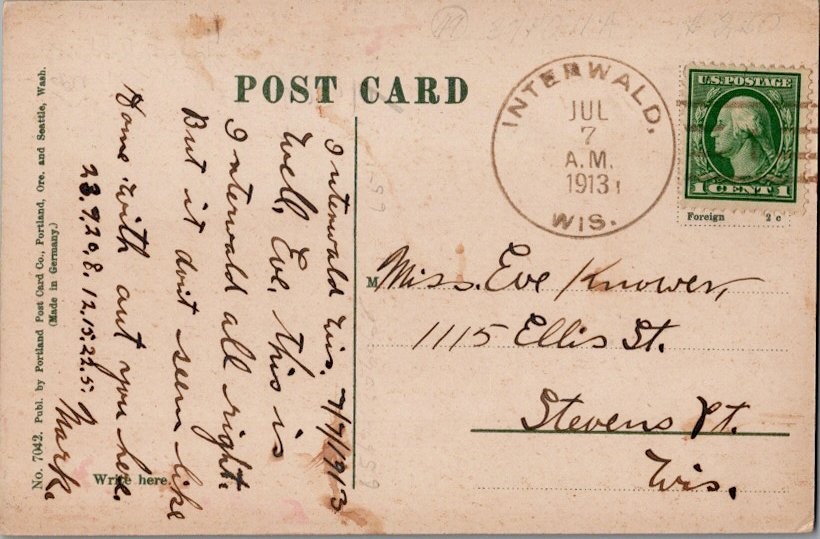 POST CARD
INTERWALD,
JUL
7
A.M.
1913
WIS.
U.S. POSTAGE
1 CENT 1
Foreign 2 c
Interwald Wis. 7/7/1913
Well, Eve, this is
Interwald all right.
But it don't seem like
Home with out you here.
23.9,20,8. 12.15.22.5. Mark
Miss. Eve Knower,
1115 Ellis St.
Stevens Pt.
Wis.
Write here.
No. 7042. Publ. by Portland Post Card Co., Portland, Ore. and Seattle, Wash.
(Made in Germany.)